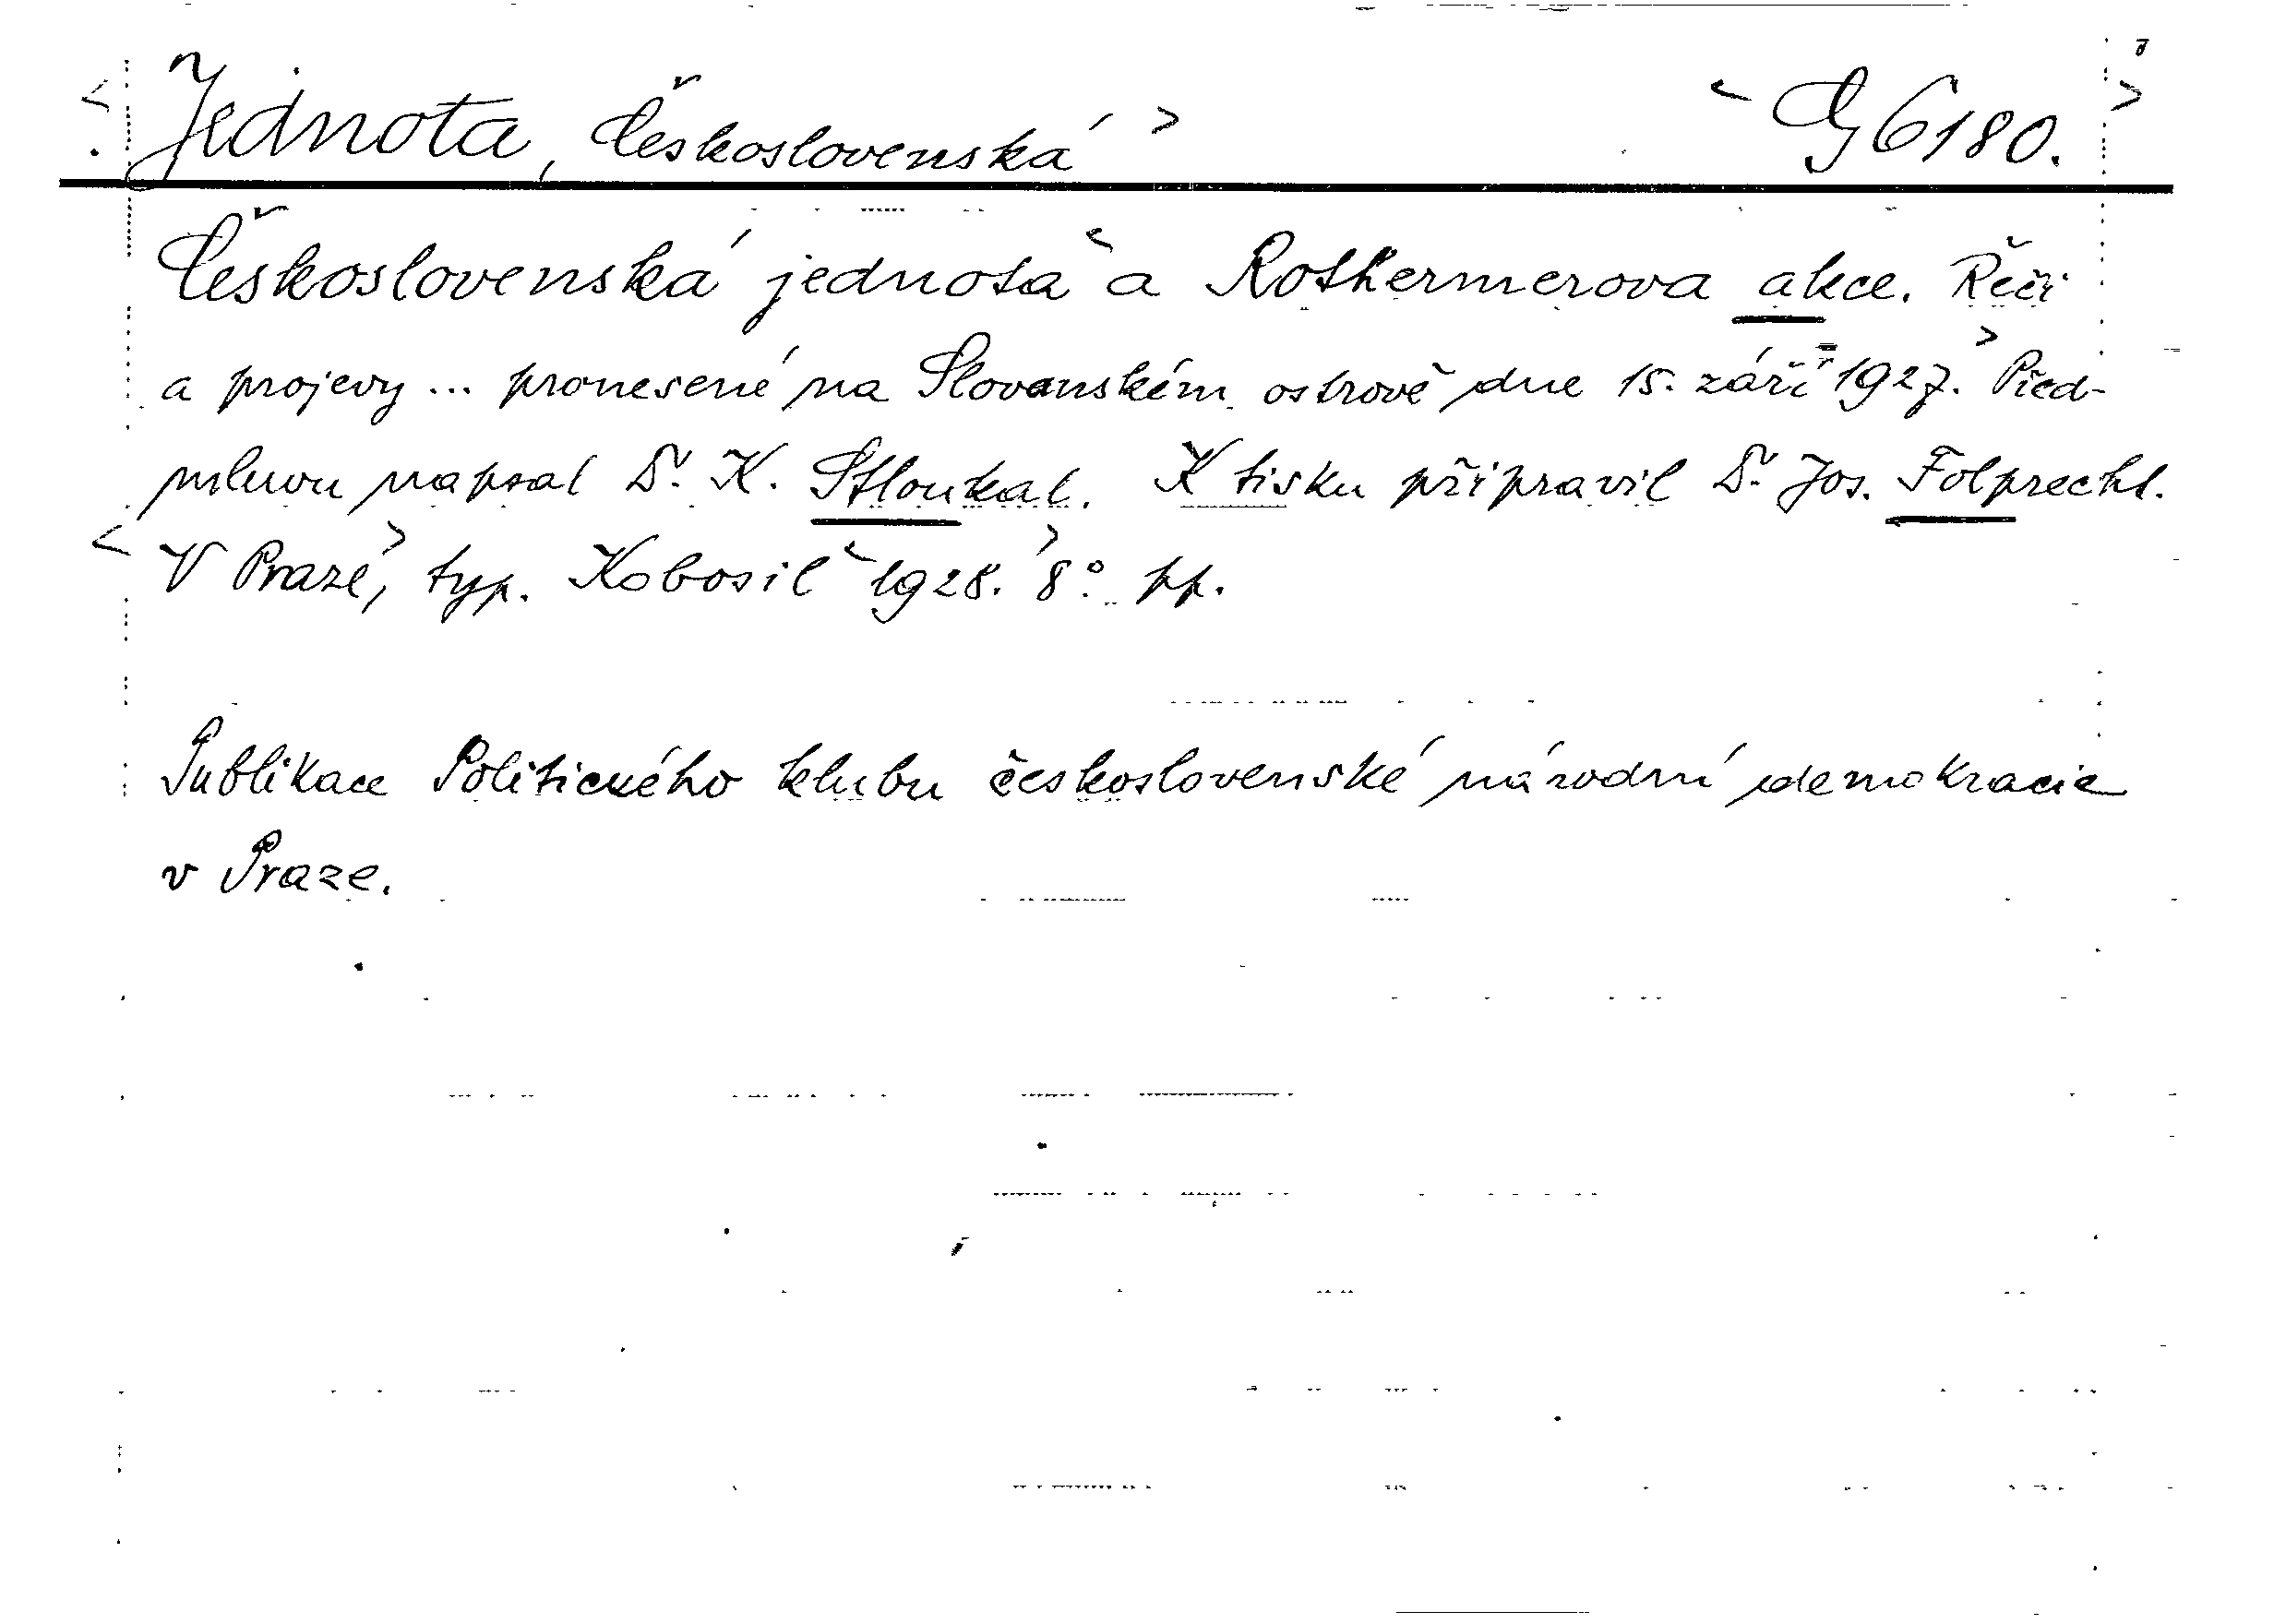 Jednota, Československá G 6180.
Československá jednota a Rothermerova akce. Řeči
a projevy ... pronesené na Slovanském ostrově dne 15. září 1927. Před-
mluvu napsal Dr. K. Stloukal. K tisku připravil Dr. Jos. Folprecht.
V Praze, typ. Kobosil 1928. 8° pp.
Publikace Politického klubu československé národní demokracie
v Praze.